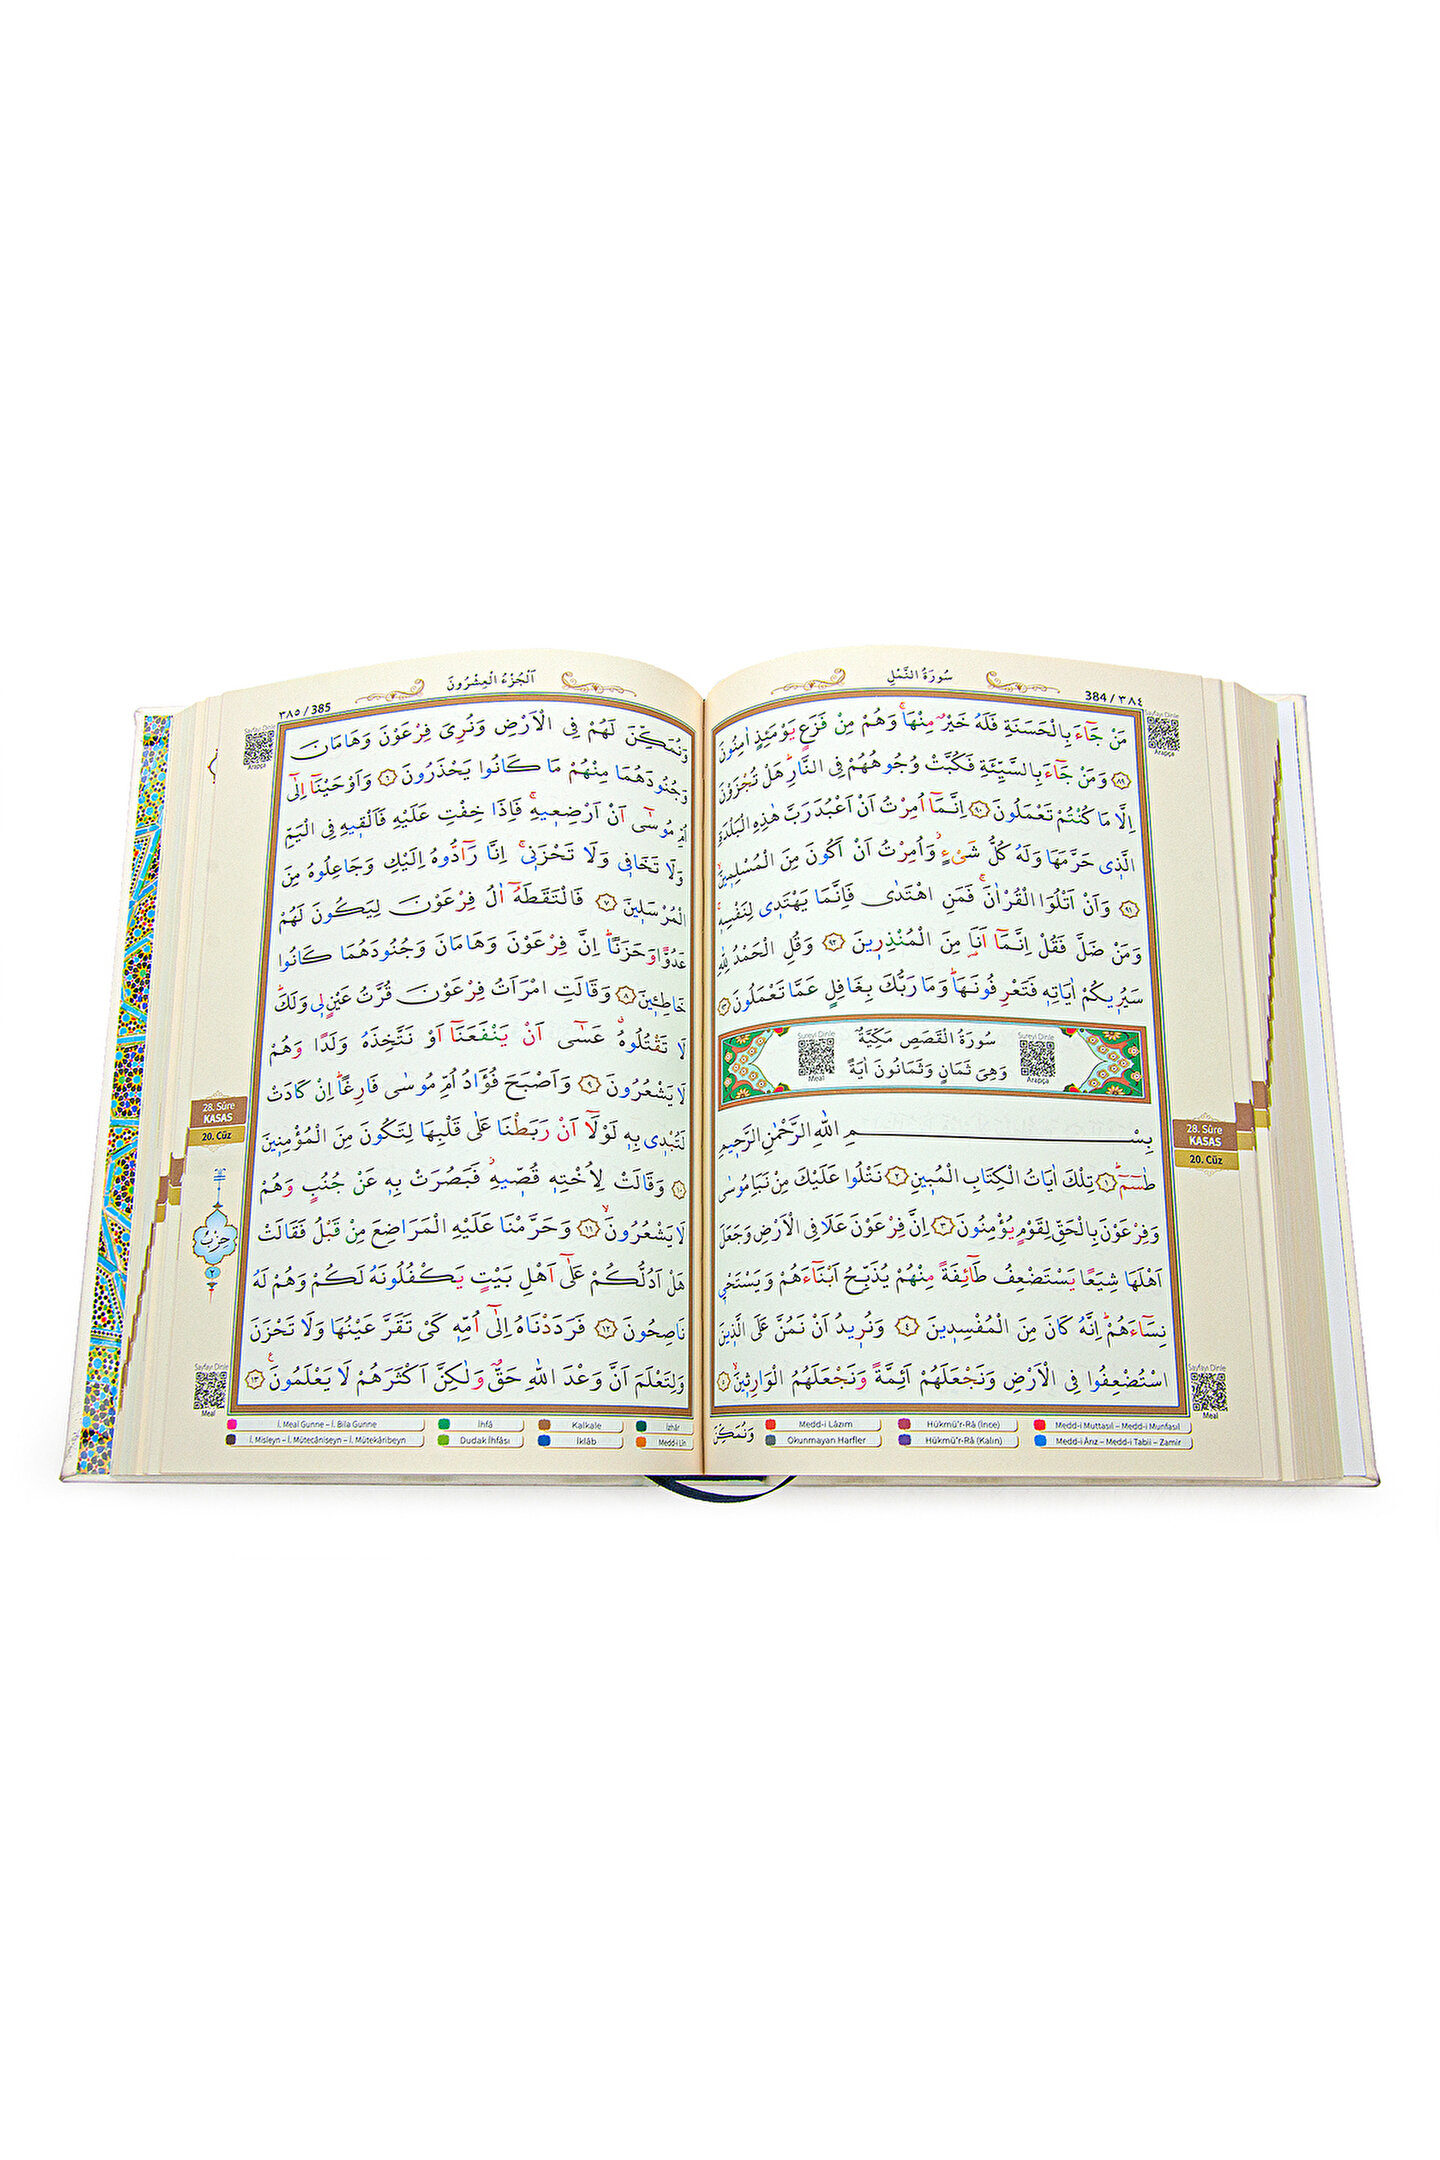 سُورَةُ النَّمْلِ
384 / ٣٨٤
Sayfayı Dinle
Arapça
مَنْ جَٓاءَ بِالْحَسَنَةِ فَلَهُ خَيْرٌ مِنْهَاۚ وَهُمْ مِنْ فَزَعٍ يَوْمَئِذٍ اٰمِنُونَ
﴿٨٩﴾ وَمَنْ جَٓاءَ بِالسَّيِّئَةِ فَكُبَّتْ وُجُوهُهُمْ فِي النَّارِۜ هَلْ تُجْزَوْنَ
اِلَّا مَا كُنْتُمْ تَعْمَلُونَ ﴿٩٠﴾ اِنَّمَٓا اُمِرْتُ اَنْ اَعْبُدَ رَبَّ هٰذِهِ الْبَلْدَةِ
الَّذ۪ي حَرَّمَهَا وَلَهُ كُلُّ شَيْءٍۘ وَاُمِرْتُ اَنْ اَكُونَ مِنَ الْمُسْلِم۪ينَۙ
﴿٩١﴾ وَاَنْ اَتْلُوَا الْقُرْاٰنَۚ فَمَنِ اهْتَدٰى فَاِنَّمَا يَهْتَد۪ي لِنَفْسِه۪ۚ
وَمَنْ ضَلَّ فَقُلْ اِنَّمَٓا اَنَا۬ مِنَ الْمُنْذِر۪ينَ ﴿٩٢﴾ وَقُلِ الْحَمْدُ لِلّٰهِ
سَيُر۪يكُمْ اٰيَاتِه۪ فَتَعْرِفُونَهَاۜ وَمَا رَبُّكَ بِغَافِلٍ عَمَّا تَعْمَلُونَ ﴿٩٣﴾
سُورَةُ الْقَصَصِ مَكِّيَّةٌ
وَهِيَ ثَمَانٍ وَثَمَانُونَ اٰيَةً
Sureyi Dinle
Meal
Sureyi Dinle
Arapça
بِسْمِ اللّٰهِ الرَّحْمٰنِ الرَّح۪يمِ
طٰسٓمٓۜ ﴿١﴾ تِلْكَ اٰيَاتُ الْكِتَابِ الْمُب۪ينِ ﴿٢﴾ نَتْلُوا عَلَيْكَ مِنْ نَبَأِ مُوسٰى
وَفِرْعَوْنَ بِالْحَقِّ لِقَوْمٍ يُؤْمِنُونَ ﴿٣﴾ اِنَّ فِرْعَوْنَ عَلَا فِي الْاَرْضِ وَجَعَلَ
اَهْلَهَا شِيَعًا يَسْتَضْعِفُ طَٓائِفَةً مِنْهُمْ يُذَبِّحُ اَبْنَٓاءَهُمْ وَيَسْتَحْي۪
نِسَٓاءَهُمْۜ اِنَّهُ كَانَ مِنَ الْمُفْسِد۪ينَ ﴿٤﴾ وَنُر۪يدُ اَنْ نَمُنَّ عَلَى الَّذ۪ينَ
اسْتُضْعِفُوا فِي الْاَرْضِ وَنَجْعَلَهُمْ اَئِمَّةً وَنَجْعَلَهُمُ الْوَارِث۪ينَۙ ﴿٥﴾
28. Sûre
KASAS
20. Cüz
Sayfayı Dinle
Meal
وَنُمَكِّنَ
Medd-i Lâzım
Hükmü'r-Râ (İnce)
Medd-i Muttasıl – Medd-i Munfasıl
Okunmayan Harfler
Hükmü'r-Râ (Kalın)
Medd-i Ârız – Medd-i Tabii – Zamir
اَلْجُزْءُ الْعِشْرُونَ
٣٨٥ / 385
Sayfayı Dinle
Arapça
وَنُمَكِّنَ لَهُمْ فِي الْاَرْضِ وَنُرِيَ فِرْعَوْنَ وَهَامَانَ
وَجُنُودَهُمَا مِنْهُمْ مَا كَانُوا يَحْذَرُونَ ﴿٦﴾ وَاَوْحَيْنَٓا اِلٰٓى
اُمِّ مُوسٰٓى اَنْ اَرْضِع۪يهِۚ فَاِذَا خِفْتِ عَلَيْهِ فَاَلْق۪يهِ فِي الْيَمِّ
وَلَا تَخَاف۪ي وَلَا تَحْزَن۪يۚ اِنَّا رَٓادُّوهُ اِلَيْكِ وَجَاعِلُوهُ مِنَ
الْمُرْسَل۪ينَ ﴿٧﴾ فَالْتَقَطَهُٓ اٰلُ فِرْعَوْنَ لِيَكُونَ لَهُمْ
عَدُوًّا وَحَزَنًاۜ اِنَّ فِرْعَوْنَ وَهَامَانَ وَجُنُودَهُمَا كَانُوا
خَاطِـ۪ٔينَ ﴿٨﴾ وَقَالَتِ امْرَاَتُ فِرْعَوْنَ قُرَّتُ عَيْنٍ ل۪ي وَلَكَۜ
لَا تَقْتُلُوهُۗ عَسٰٓى اَنْ يَنْفَعَنَٓا اَوْ نَتَّخِذَهُ وَلَدًا وَهُمْ
لَا يَشْعُرُونَ ﴿٩﴾ وَاَصْبَحَ فُؤٰادُ اُمِّ مُوسٰى فَارِغًاۜ اِنْ كَادَتْ
لَتُبْد۪ي بِه۪ لَوْلَٓا اَنْ رَبَطْنَا عَلٰى قَلْبِهَا لِتَكُونَ مِنَ الْمُؤْمِن۪ينَ
﴿١٠﴾ وَقَالَتْ لِاُخْتِه۪ قُصّ۪يهِۘ فَبَصُرَتْ بِه۪ عَنْ جُنُبٍ وَهُمْ
لَا يَشْعُرُونَۙ ﴿١١﴾ وَحَرَّمْنَا عَلَيْهِ الْمَرَاضِعَ مِنْ قَبْلُ فَقَالَتْ
هَلْ اَدُلُّكُمْ عَلٰٓى اَهْلِ بَيْتٍ يَكْفُلُونَهُ لَكُمْ وَهُمْ لَهُ
نَاصِحُونَ ﴿١٢﴾ فَرَدَدْنَاهُ اِلٰٓى اُمِّه۪ كَيْ تَقَرَّ عَيْنُهَا وَلَا تَحْزَنَ
وَلِتَعْلَمَ اَنَّ وَعْدَ اللّٰهِ حَقٌّ وَلٰكِنَّ اَكْثَرَهُمْ لَا يَعْلَمُونَ۟ ﴿١٣﴾
28. Sûre
KASAS
20. Cüz
حِزْبُ
٢
Sayfayı Dinle
Meal
İ. Meal Gunne – İ. Bila Gunne
İhfâ
Kalkale
İzhâr
İ. Misleyn – İ. Mütecâniseyn – İ. Mütekâribeyn
Dudak İhfâsı
İklâb
Medd-i Lîn